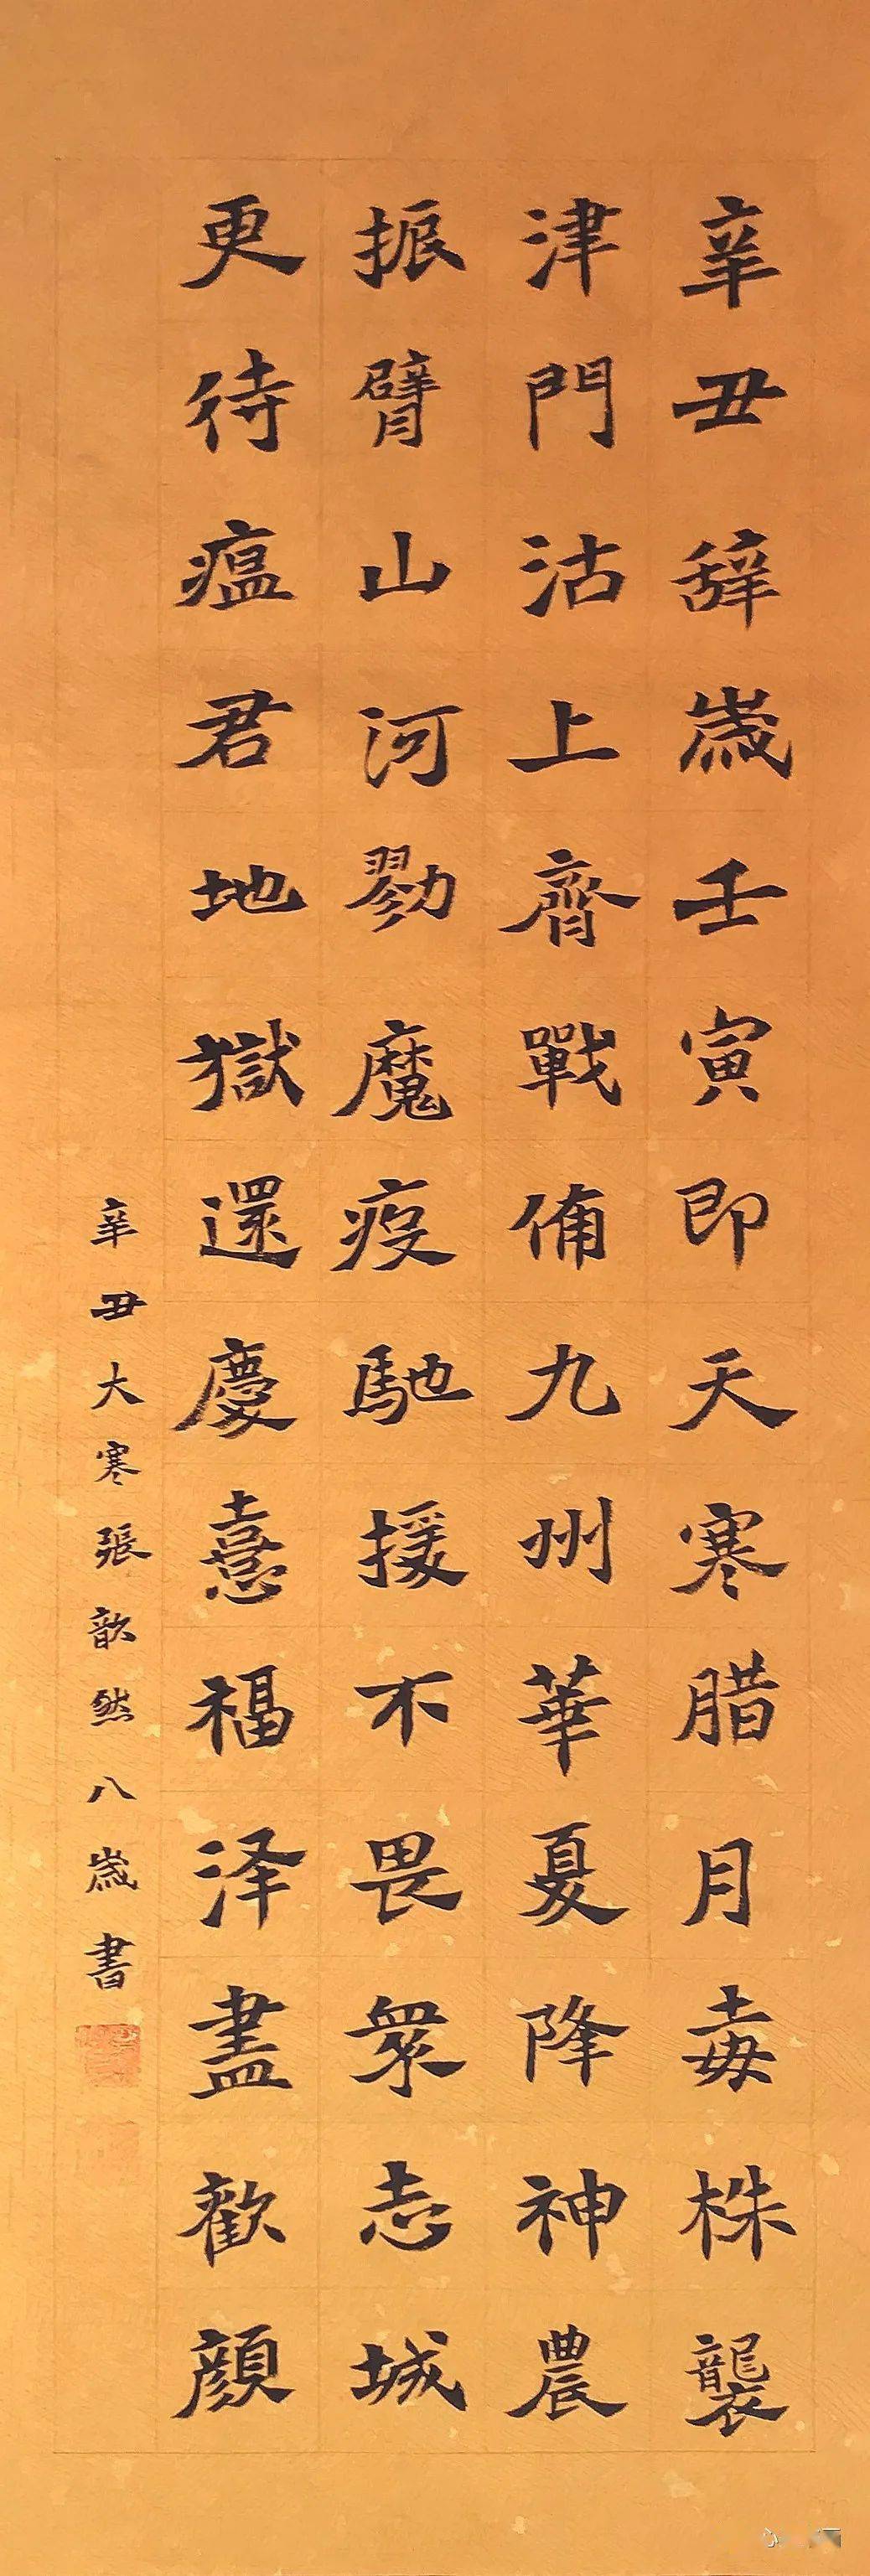 辛丑辞歲壬寅即天寒腊月毒株襲
津門沽上齊戰備九州華夏降神農
振臂山河勠魔疫馳援不畏衆志城
更待瘟君地獄還慶憙福泽盡歡顏
辛丑大寒張歆然八歲書